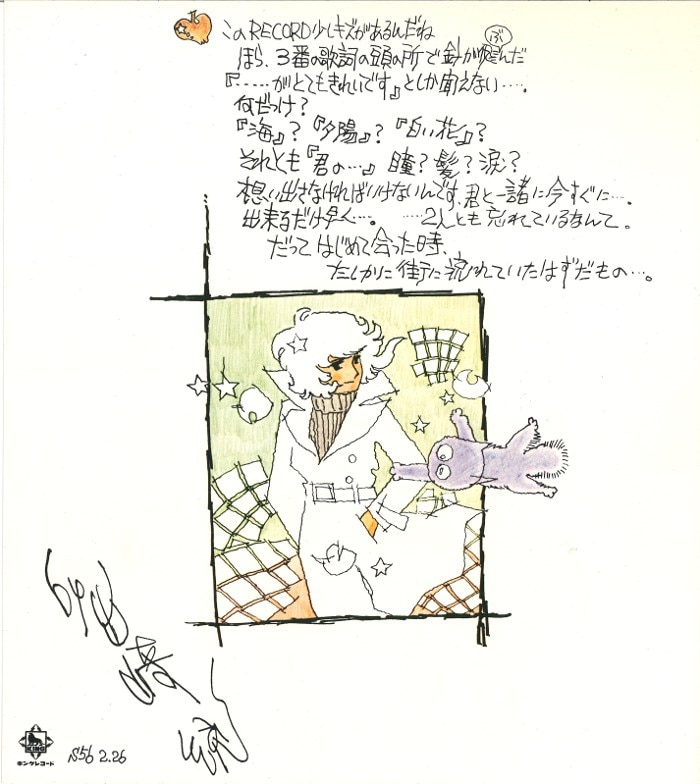 このRECORD少しキズがあるんだね
ほら、3番の歌詞の頭の所で針が飛んだ
『‥‥‥がとてもきれいです』としか聞えない‥‥。
何だっけ?
『海』?『夕陽』?『白い花』?
それとも『君の…』瞳?髪?涙?
想い出さなければいけないんです、君と一諸に今すぐに…。
出来るだけ早く…。 ‥‥2人とも忘れているなんて。
だって はじめて会った時、
たしかに街に流れていたはずだもの…。
KING
キングレコード
S56 2.26